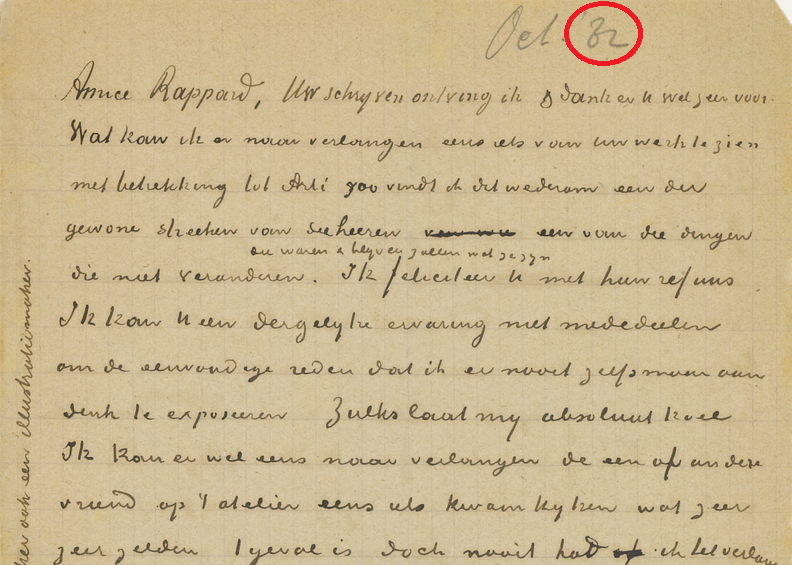 Oct. '82
Amice Rappard, Uw schryven ontving ik & dank er U wel zeer voor.
Wat kan ik er naar verlangen eens iets van uw werk te zien
met betrekking tot Arti zoo vindt ik dit wederom een der
gewone streken van die heeren een van die dingen
die waren & blyven zullen wat ze zyn
die niet veranderen. Ik feliciteer U met hun refuus
Ik kan U een dergelyke ervaring niet mededeelen
om de eenvoudige reden dat ik er nooit zelfs maar aan
denk te exposeeren Zulks laat my absoluut koel
Ik kan er wel eens naar verlangen de een of andere
vriend op 't atelier eens iets kwam kyken wat zeer
zeer zelden 't geval is doch nooit had ik
ook een illustratiemaker.